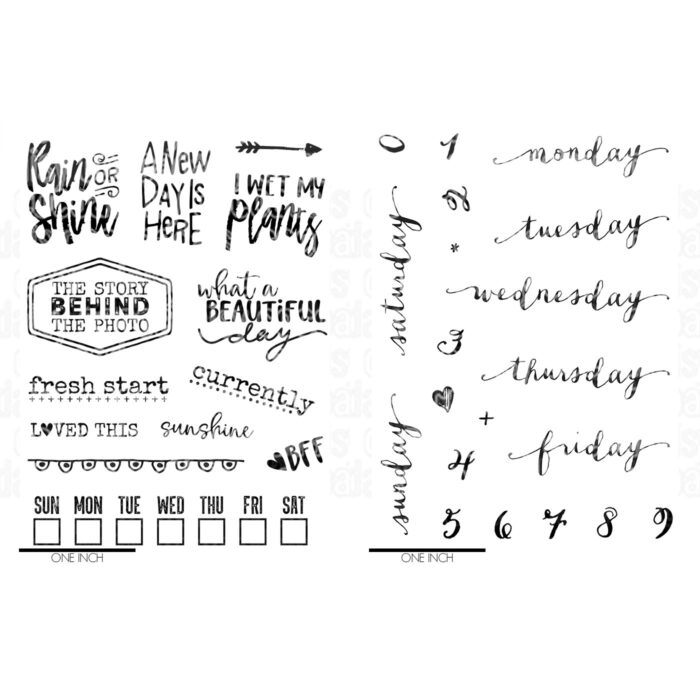 Rain OR
Shine
A New
Day Is
Here
I WET MY
plants
THE STORY
BEHIND
THE PHOTO
what a
BEAUTIFUL
day
fresh start
currently
LOVED THIS
sunshine
BFF
SUN MON TUE WED THU FRI SAT
ONE INCH
0 1 monday
2 tuesday
*
saturday
wednesday
3
thursday
+
sunday
4 friday
5 6 7 8 9
ONE INCH